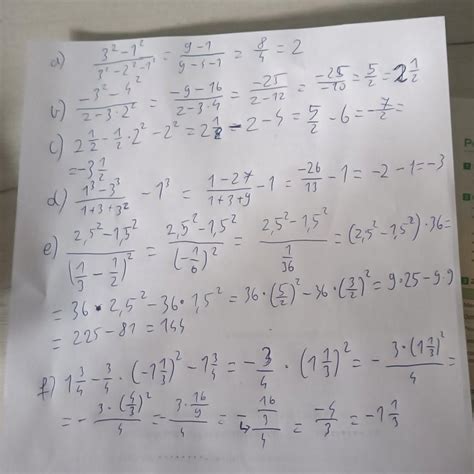 a) (3²-1²)/(3²-2²-1²) = (9-1)/(9-4-1) = 8/4 = 2
b) (-3²-4²)/(2-3·2²) = (-9-16)/(2-3·4) = -25/(2-12) = -25/-10 = 5/2 = 2 1/2
c) 2 1/2 - 1/2·2² - 2² = 2 1/2 - 2 - 4 = 5/2 - 6 = -7/2 =
= -3 1/2
d) (1³-3³)/(1+3+3²) - 1³ = (1-27)/(1+3+9) - 1 = -26/13 - 1 = -2-1 = -3
e) (2,5²-1,5²)/(1/3 - 1/2)² = (2,5²-1,5²)/(-1/6)² = (2,5²-1,5²)/(1/36) = (2,5²-1,5²)·36 =
= 36·2,5² - 36·1,5² = 36·(5/2)² - 36·(3/2)² = 9·25-9·9
= 225-81 = 144
f) 1 3/4 - 3/4·(-1 1/3)² - 1 3/4 = -3/4·(1 1/3)² = -(3·(1 1/3)²)/4 =
= -(3·(4/3)²)/4 = -(3·16/9)/4 = -(16/3)/4 = -4/3 = -1 1/3